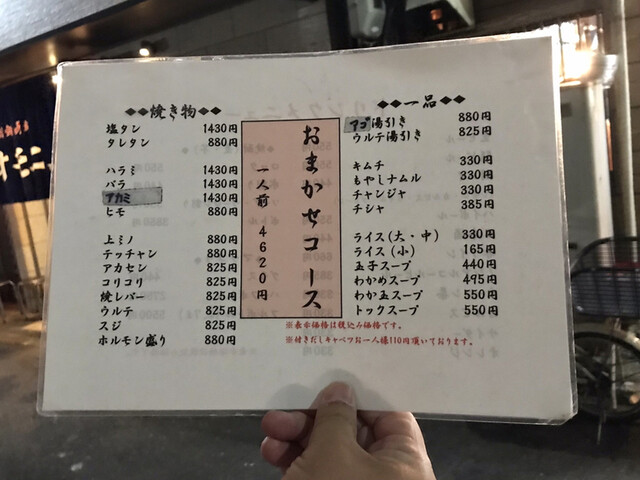 ◆◆焼き物◆◆
塩タン 1430円
タレタン 880円
ハラミ 1430円
バラ 1430円
アカミ 1430円
ヒモ 880円
上ミノ 880円
テッチャン 880円
アカセン 825円
コリコリ 825円
焼レバー 825円
ウルテ 825円
スジ 825円
ホルモン盛り 880円
おまかせコース
一人前 4620円
◆◆一品◆◆
アゴ湯引き 880円
ウルテ湯引き 825円
キムチ 330円
もやしナムル 330円
チャンジャ 330円
チシャ 385円
ライス(大・中) 330円
ライス(小) 165円
玉子スープ 440円
わかめスープ 495円
わか玉スープ 550円
トックスープ 550円
※表示価格は税込み価格です。
※付きだしキャベツお一人様110円頂いております。